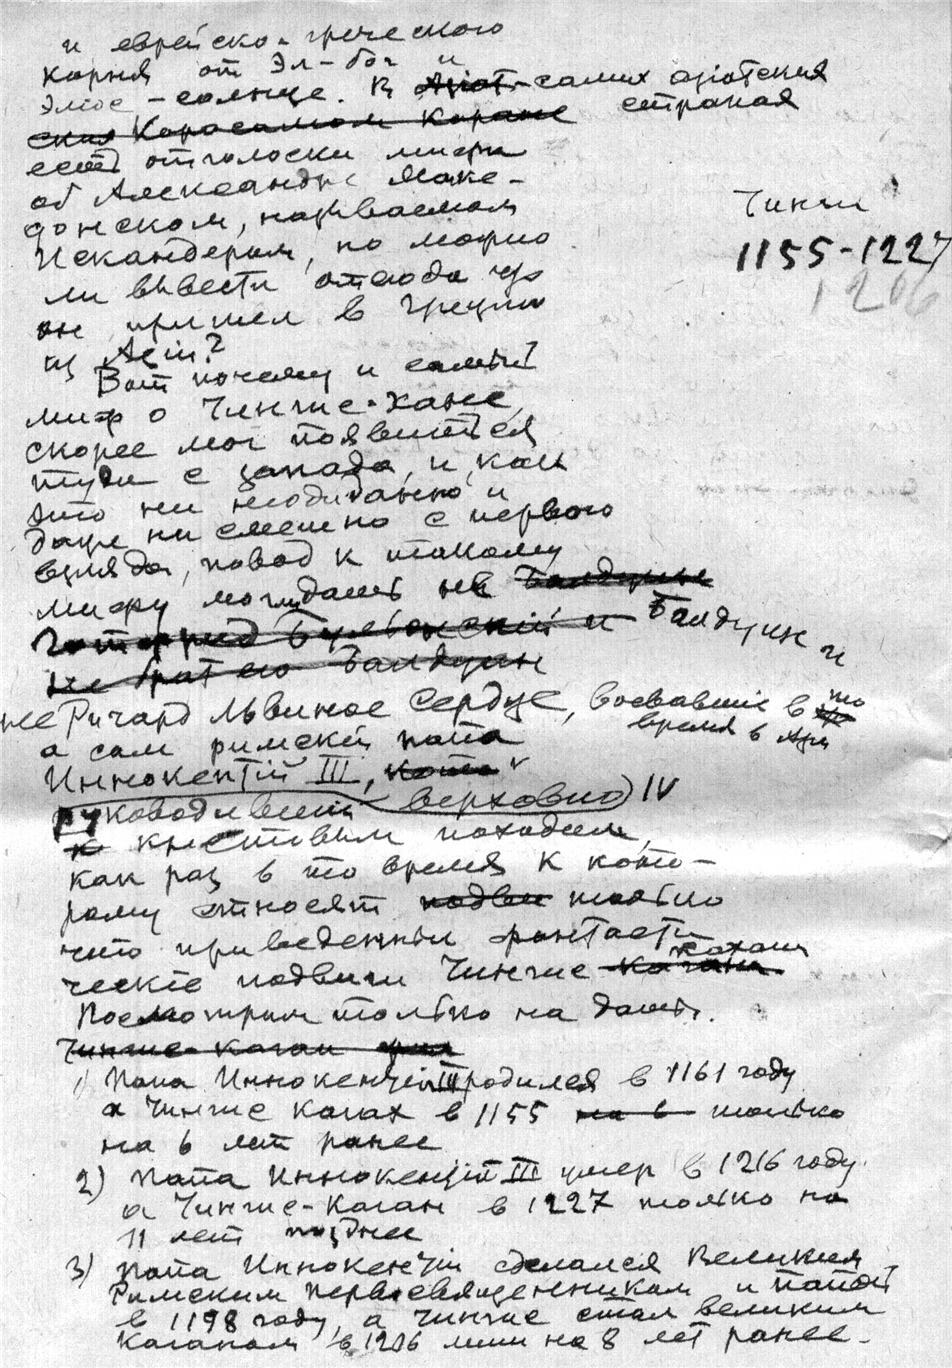 и еврейско-греческого
корня от Эл-бог и
Элiос - солнце. В самих азiотских
странах
есть отголоски мифа
об Александре Маке-
донском, называемом
Искандером, но можно
ли вывести отсюда что
он пришел в Грецiю
из Азiи?
Вот почему и самый
миф о Чингис-хане,
скорее мог появиться
туда с запада, и, как
это ни неожиданно и
даже ни смешно с первого
взгляда, повод к такому
мифу мог дать не
Балдуин и
не Ричард Львиное Сердце, воевавшiе в то
время в Азiи
а сам римскiй папа
Иннокентiй III,
верховно IV
руководившiй
крестовым походам,
как раз в то время к кото-
рому относят только
что приведенные фантасти
ческiе подвиги Чингис-
Посмотрим только на даты.
1) Папа Иннокентiй III родился в 1161 году
а Чингис Каган в 1155 только
на 6 лет ранее
2) Папа Иннокентiй III умер в 1216 году.
а Чингис-Каган в 1227 только на
11 лет позднее
3) Папа Иннокентiй сделался Великим
Римским первосвященником и папой
в 1198 году, а Чингис стал великим
Каганом в 1206 лиш на 8 лет ранее.
Чинги
1155-1227
1206